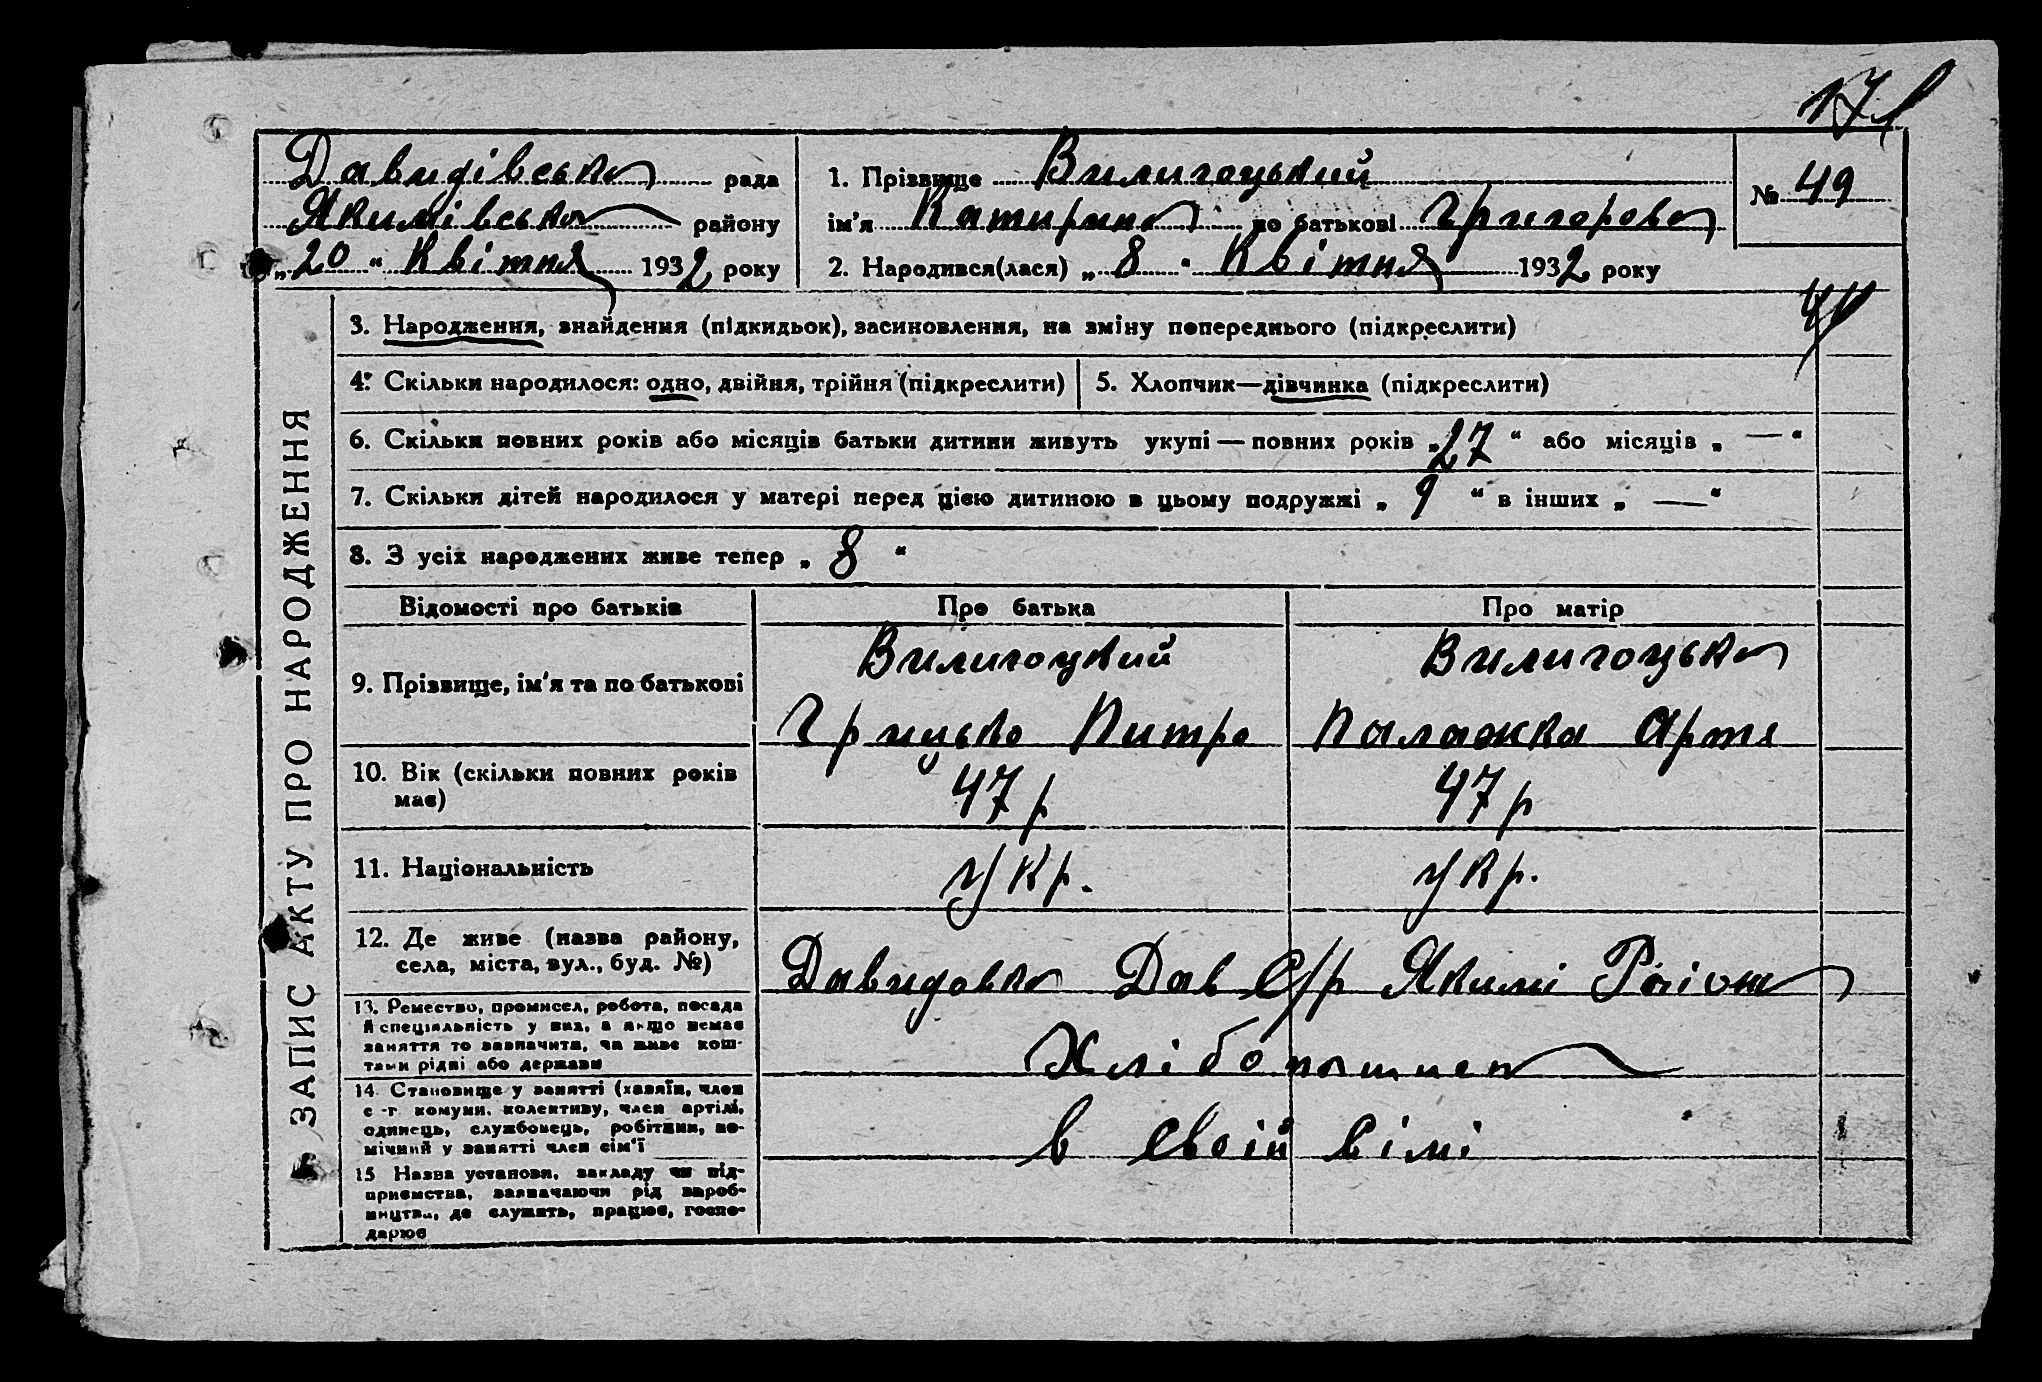 Давидівська рада
Якимівська району
„20“ Квітня 1932 року
1. Прізвище Вилигоцький
ім'я Катирина по батькові Григорова
2. Народився(лася) „8“ Квітня 1932 року
№ 49
ЗАПИС АКТУ ПРО НАРОДЖЕННЯ
3. Народження, знайдення (підкидьок), засиновлення, на зміну попереднього (підкреслити)
4. Скільки народилося: одно, двійня, трійня (підкреслити)
5. Хлопчик—дівчинка (підкреслити)
6. Скільки повних років або місяців батьки дитини живуть укупі — повних років „27“ або місяців „—“
7. Скільки дітей народилося у матері перед цією дитиною в цьому подружжі „9“ в інших „—“
8. З усіх народжених живе тепер „8“
Відомості про батьків Про батька Про матір
9. Прізвище, ім'я та по батькові
Вилигоцкий Вилигоцька
Грицько Питро Палажка Артя
10. Вік (скільки повних років має)
47 р 47 р
11. Національність
укр. укр.
12. Де живе (назва району,
села, міста, вул., буд. №)
Давидовка Дав С/р Якимі Раіона
13. Ремество, промисел, робота, посада
й спеціяльність у них, а якщо немає
заняття то зазначити, чи живе кош-
тами рідні або держави
Хлібопашица
14. Становище у занятті (хазяїн, член
с.-г. комуни, колективу, член артілі,
одинець, службовець, робітник, по-
мічний у занятті член сім'ї
в своій сімі
15 Назва установи, закладу чи під-
приємства, зазначаючи рід вироб-
ництва, де служить, працює, госпо-
дарює